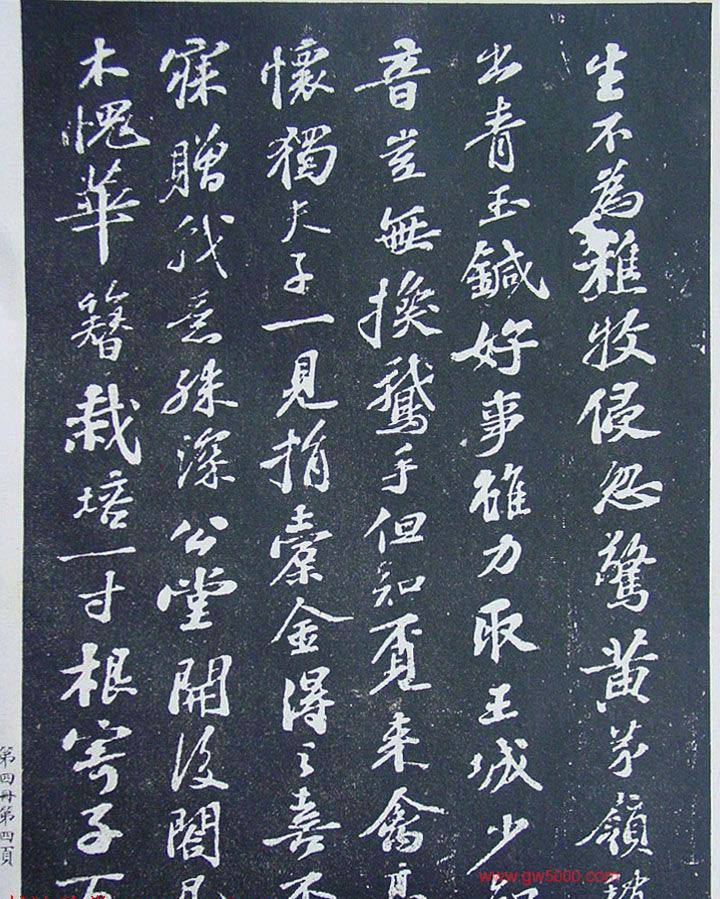 生不為樵牧侵忽驚黄茅嶺稍
出青玉鍼好事雖力取王城少知
音豈無換鵝手但知覓来禽高
懷獨夫子一見捐橐金得之喜不
寐贈我意殊深公堂開後閣凡
木愧華簪栽培一寸根寄子百
第四冊第四頁
www.gw5000.com